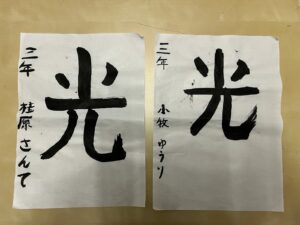 光
三年
桂原さんて
光
三年
小牧ゆうり